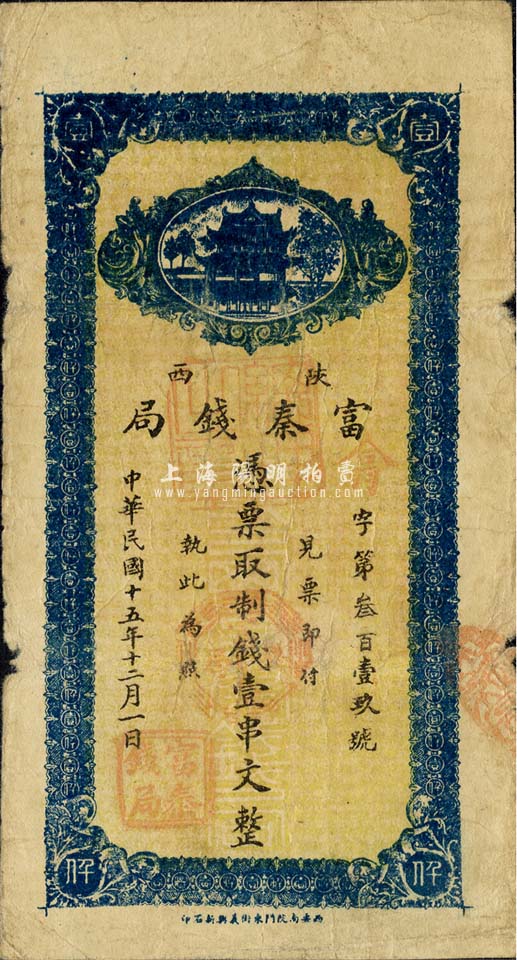 壹 壹
西 陝
局錢秦富
字第叁百壹玖號
見票即付
憑票取制錢壹串文整
執此為照
中華民國十五年十二月一日
富秦錢局
仟 仟
印石新興義街東門院南安西
上海陽明拍賣
www.yangmingauction.com